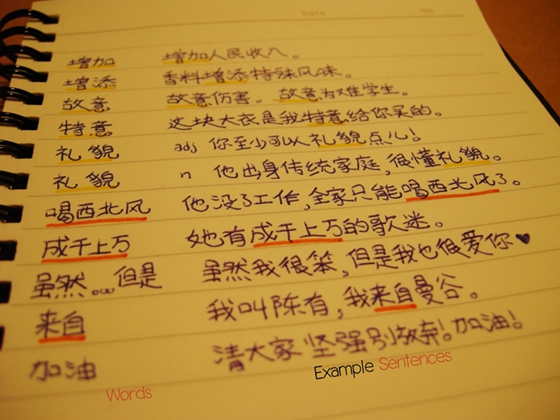 增加 增加人民收入。
增添 香料增添特殊风味。
故意 故意伤害。故意为难学生。
特意 这块大衣是我特意给你买的。
礼貌 adj 你至少可以礼貌点儿!
礼貌 n 他出身传统家庭,很懂礼貌。
喝西北风 他没了工作,全家只能喝西北风了。
成千上万 她有成千上万的歌迷。
虽然...但是 虽然我很笨,但是我也很爱你♥
来自 我叫陈有,我来自曼谷。
加油 清大家坚强别放弃!加油!
Words Example Sentences